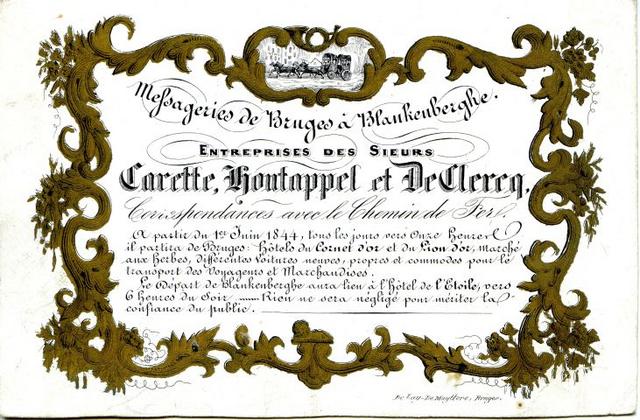 Messageries de Bruges à Blankenberghe.
ENTREPRISES DES SIEURS
Carette, Hontappel et DeClercq,
Correspondances avec le Chemin de Fer.
A partir du 1er Juin 1844, tous les jours vers Onze heures
il partira de Bruges: Hôtels du Cornet d'or et du Lion d'or, Marché
aux herbes, différentes Voitures neuves, propres et commodes pour le
transport des Voyageurs et Marchandises.
Le Départ de Blankenberghe aura lieu à l'hôtel de l'Etoile, vers
6 heures du Soir. — Rien ne sera négligé pour mériter la
confiance du public.
De Lay-De Muyttere, Bruges.